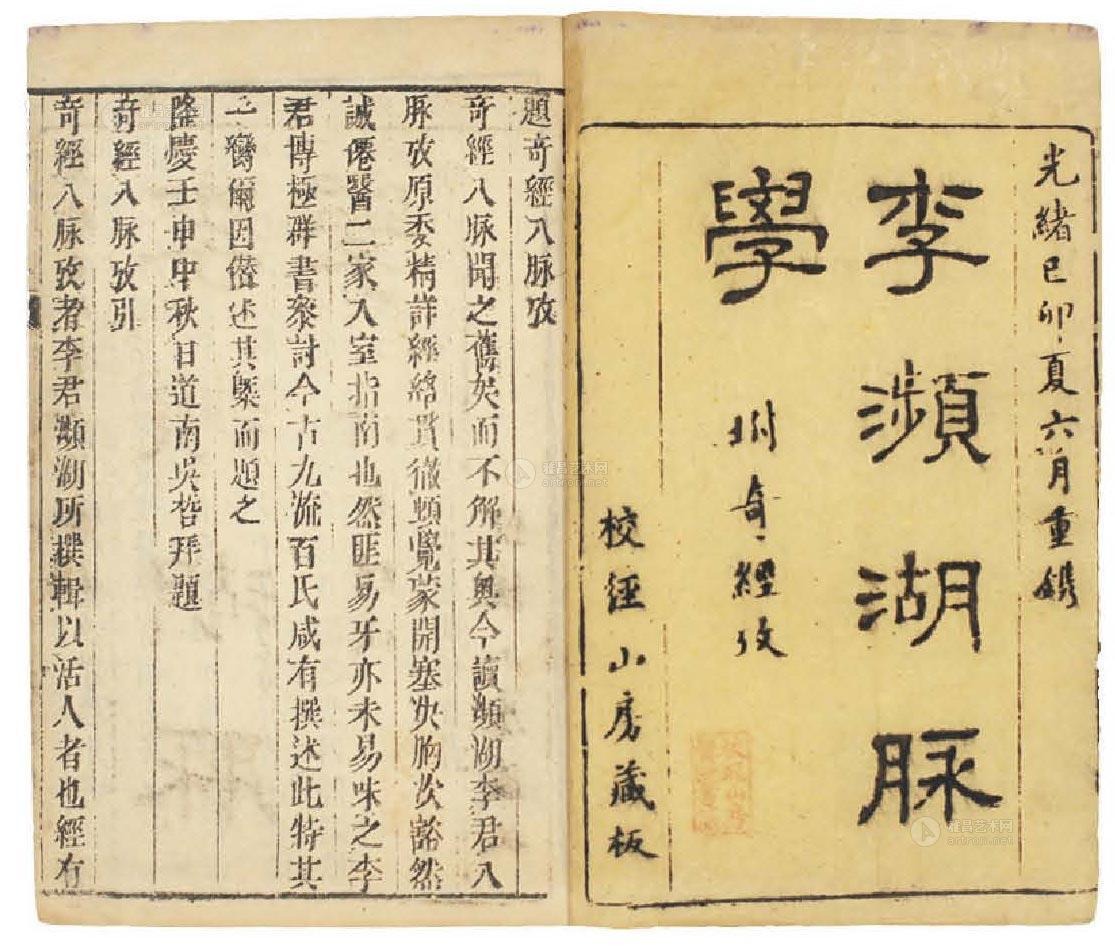 光緒己卯夏六月重鐫
李瀕湖脉
學
坿奇經攷
校經山房藏板
題奇經八脉攷
奇經八脉聞之舊矣而不解其奥今讀瀕湖李君八
脉攷原委精詳經絡貫徹頓覺蒙開塞决胸次豁然
誠僊醫二家入室指南也然匪易牙亦未易味之李
君博極群書叅討今古九流百氏咸有撰述此特其
一臠爾因僭述其槩而題之
隆慶壬申中秋日道南吳哲拜題
奇經八脉攷引
奇經八脉攷者李君瀕湖所撰輯以活人者也經有
雅昌艺术网
artron.net